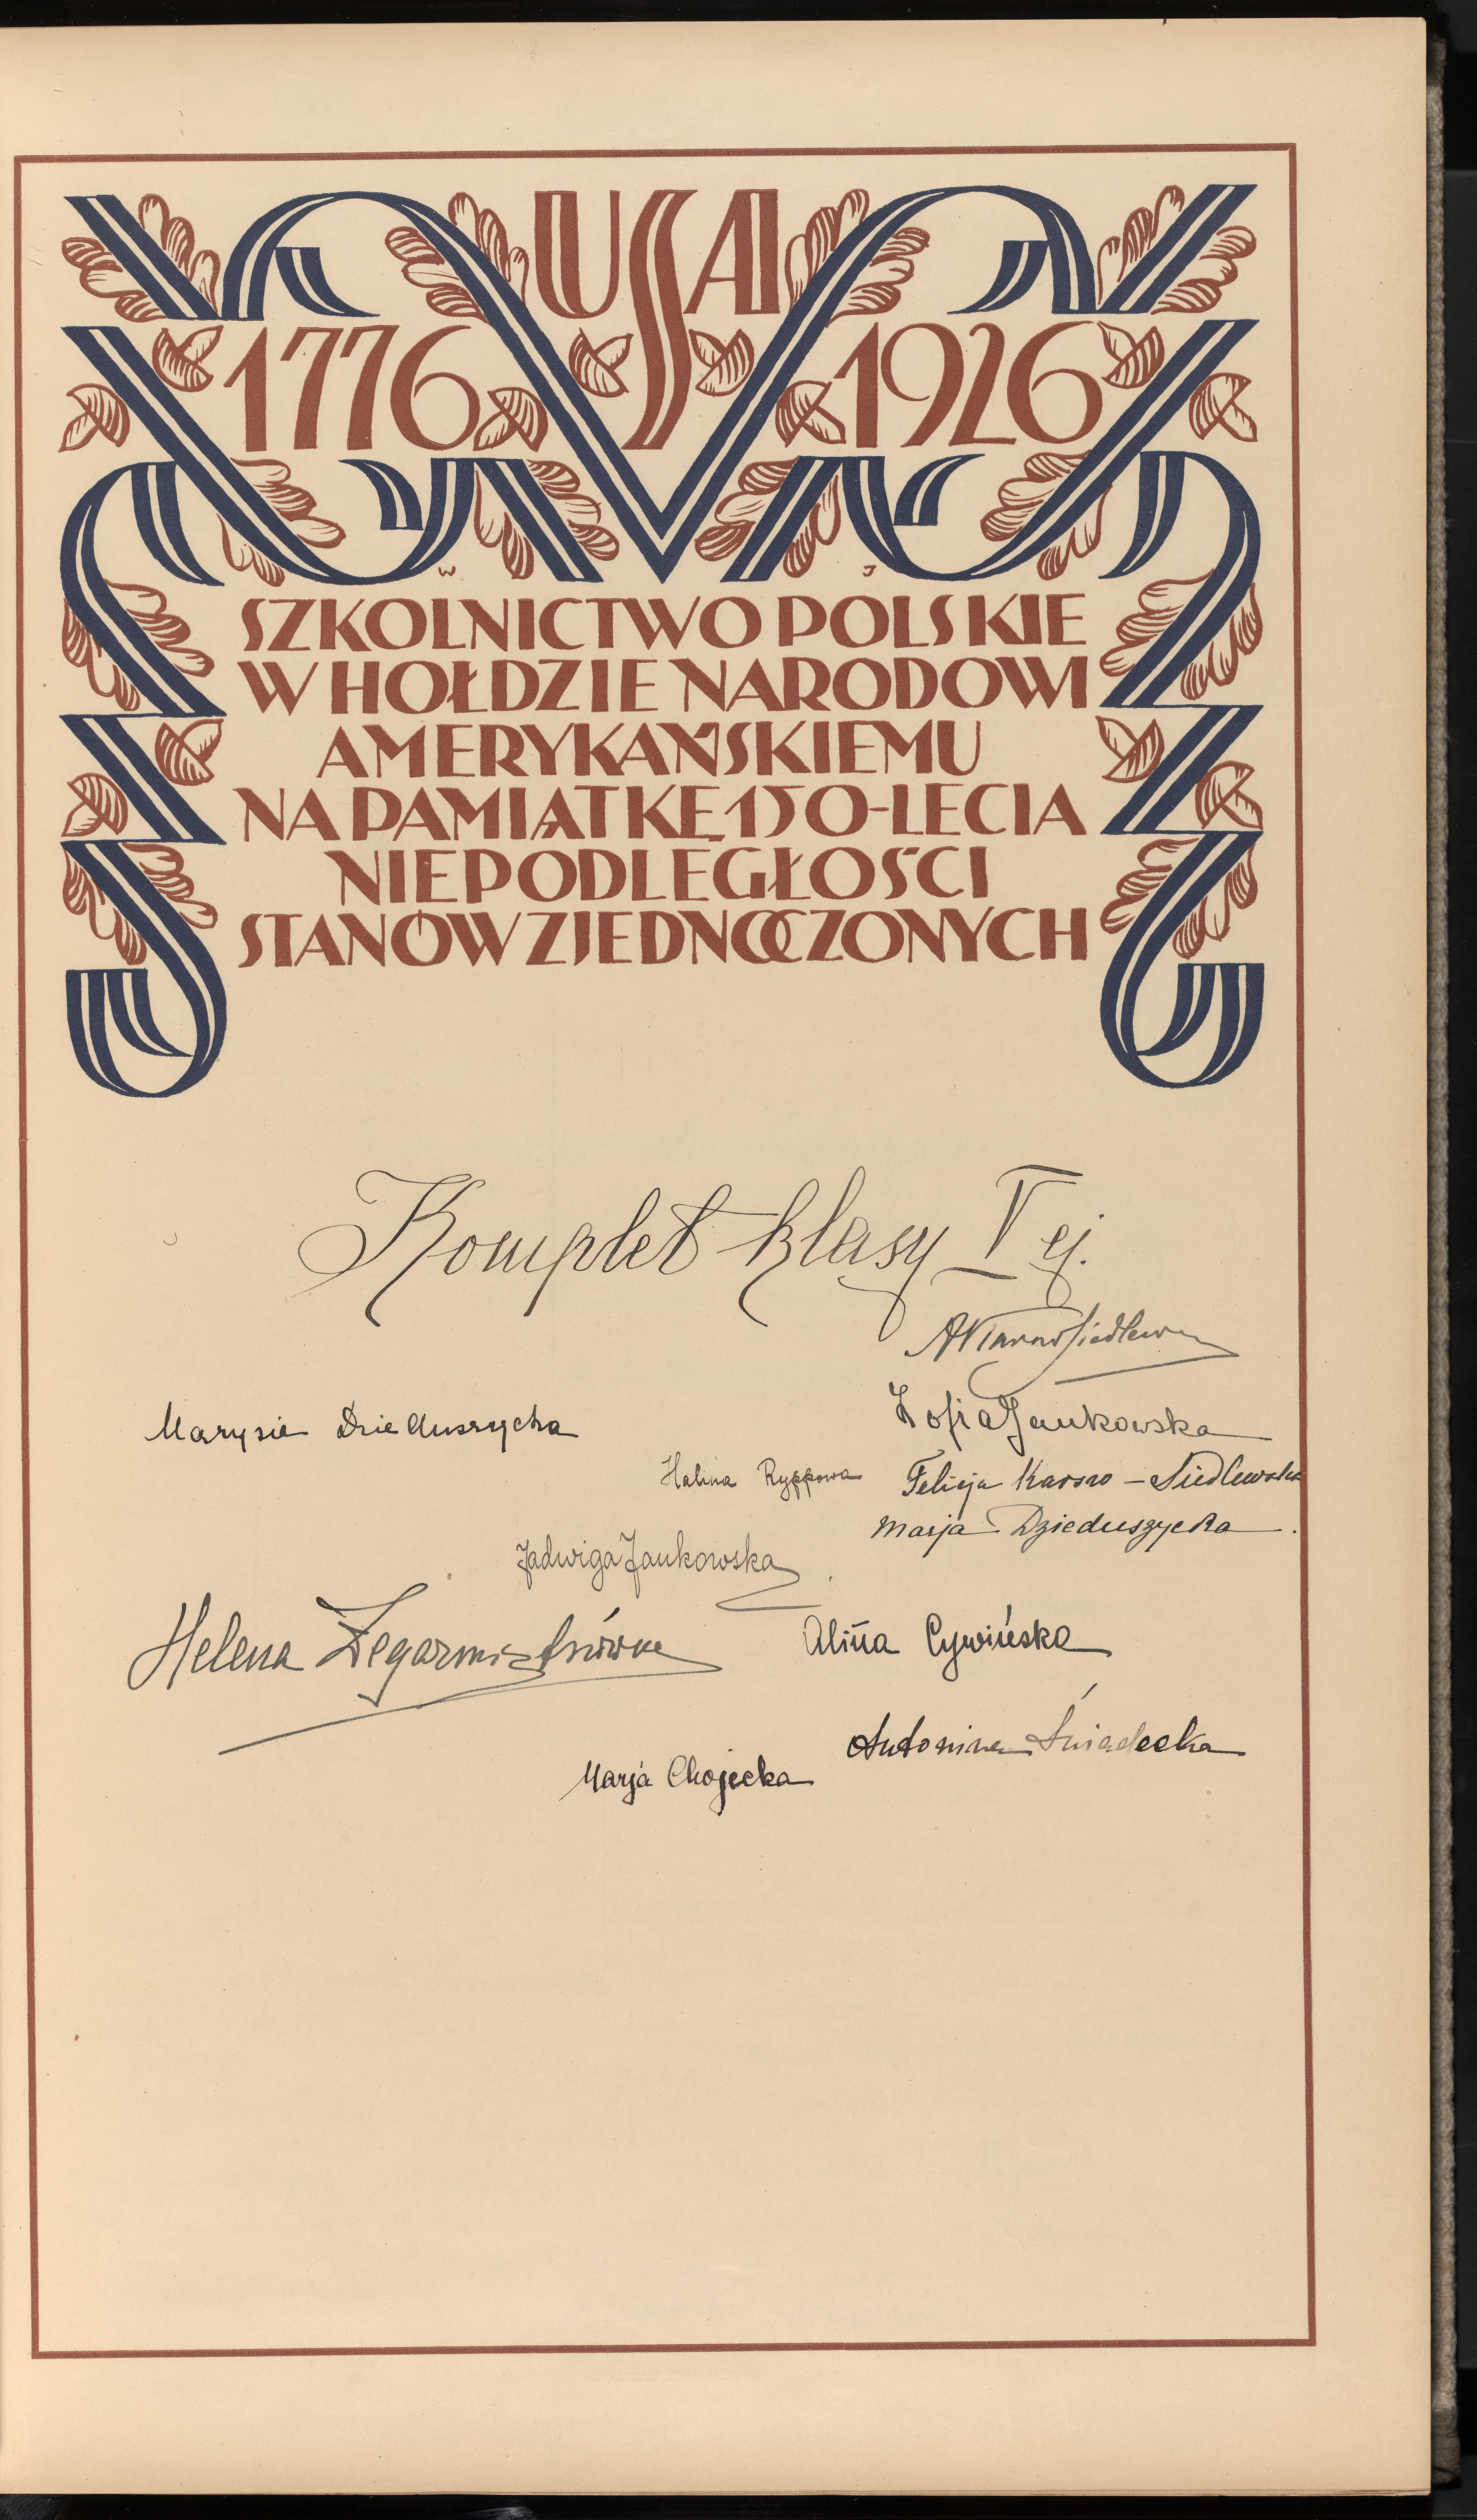 USA
1776 1926
W J
SZKOLNICTWO POLSKIE
W HOŁDZIE NARODOWI
AMERYKAŃSKIEMU
NA PAMIĄTKĘ 150-LECIA
NIEPODLEGŁOŚCI
STANÓW ZJEDNOCZONYCH
Komplet klasy V ej.
Zofia Jankowska
Marysia Dzieduszycka
Halina Ryppowa Felicja Karszo-Siedlewska
Marja Dzieduszycka.
Jadwiga Jankowska
Helena Zegarmistrzówna Alina Cywińska
Antonina Śniadecka
Marja Chojecka